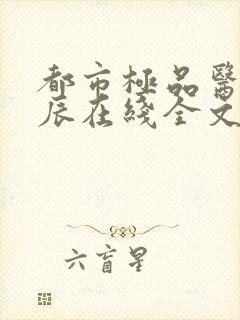 都市極品醫
辰在綫全文
六盲星